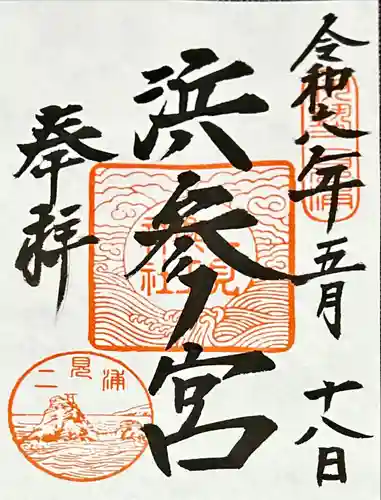 令和八年五月十八日
浜参宮
奉拝
二見浦